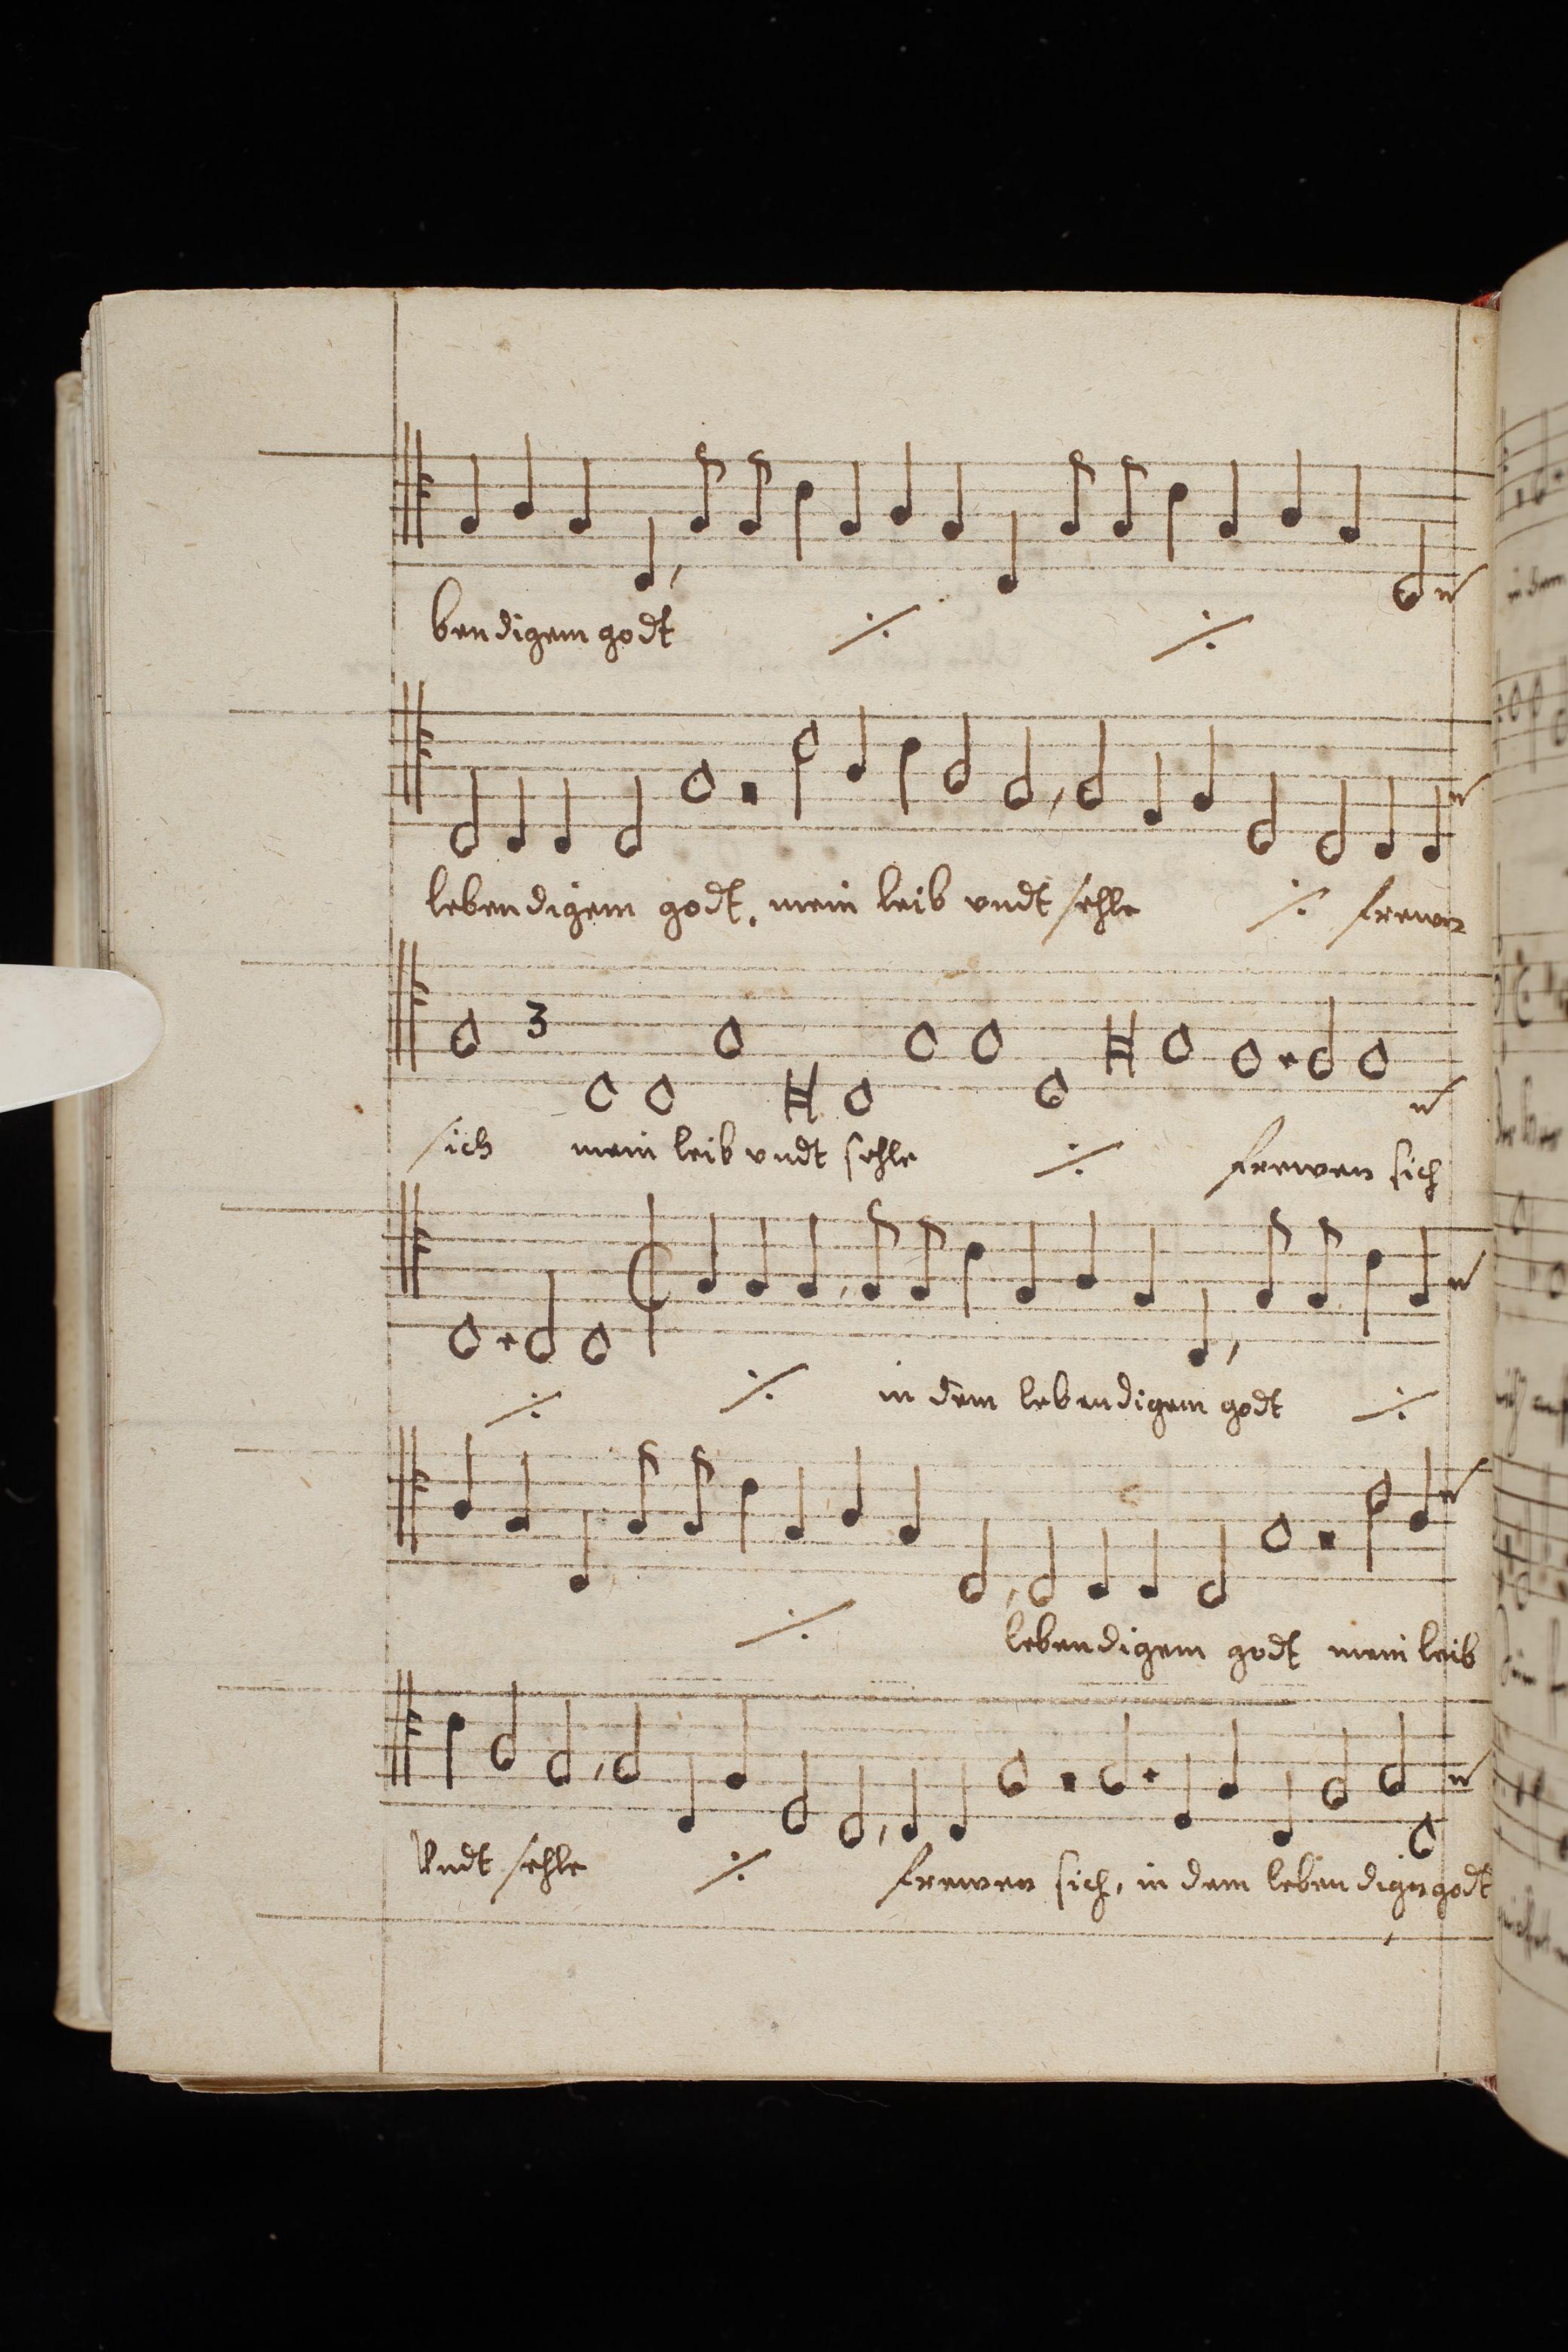 bendigem godt ⁒ ⁒
lebendigem godt, mein leib vndt sehle ⁒ frewen
3
sich mein leib vndt sehle ⁒ frewen sich
⁒ ⁒ in dem lebendigem godt ⁒
⁒ lebendigem godt mein leib
Vndt sehle ⁒ frewen sich, in dem lebendigen godt